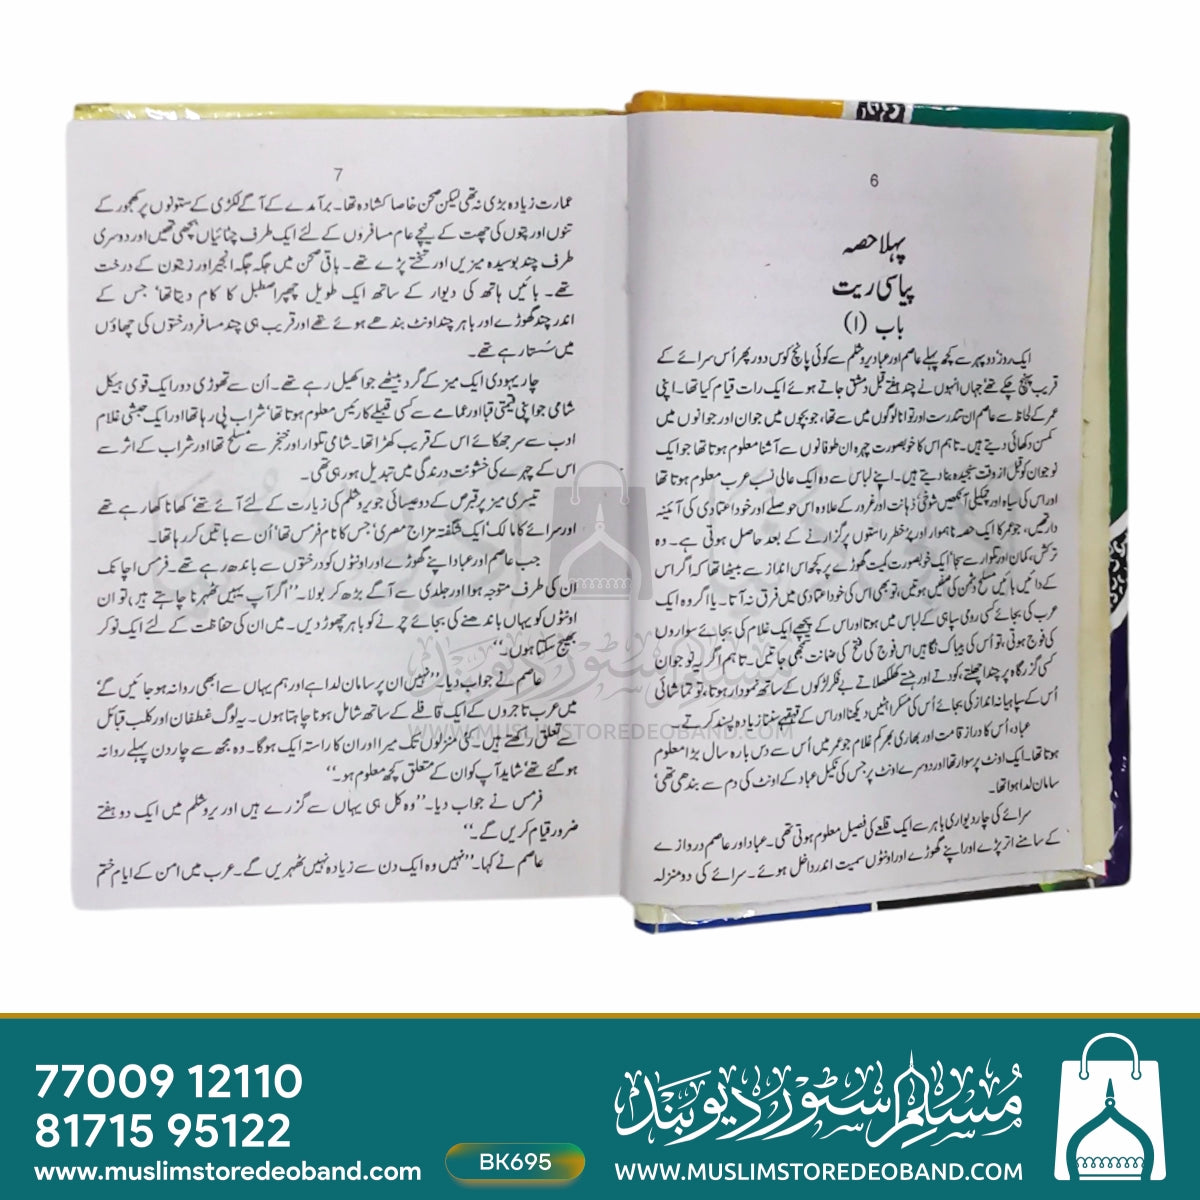 6
پہلا حصہ
پیاسی ریت
باب (۱)
ایک روز دوپہر سے کچھ پہلے عاصم اور عباد یروشلم سے کوئی پانچ کوس دور پھر اُس سرائے کے
قریب پہنچ چکے تھے جہاں انہوں نے چند ہفتے قبل دمشق جاتے ہوئے ایک رات قیام کیا تھا۔ اپنی
عمر کے لحاظ سے عاصم ان تندرست اور توانا لوگوں میں سے تھا، جو بچوں میں جوان اور جوانوں میں
کمسن دکھائی دیتے ہیں۔ تاہم اس کا خوبصورت چہرہ ان طوفانوں سے آشنا معلوم ہوتا تھا جو ایک
نوجوان کو قبل از وقت سنجیدہ بنا دیتے ہیں۔ اپنے لباس سے وہ ایک عالی نسب عرب معلوم ہوتا تھا
اور اس کی سیاہ اور چمکیلی آنکھیں شوخی، ذہانت اور غرور کے علاوہ اس حوصلے اور خود اعتمادی کی آئینہ
دار تھیں، جو عمر کا ایک حصہ ناہموار اور پُرخطر راستوں پر گزارنے کے بعد حاصل ہوتی ہے۔ وہ
ترکش، کمان اور تلوار سے سجا ایک خوبصورت کمیت گھوڑے پر کچھ اس انداز سے بیٹھا تھا کہ اگر اس
کے دائیں بائیں مسلح دشمن کی صفیں ہوتیں، تو بھی اس کی خود اعتمادی میں فرق نہ آتا۔ یا اگر وہ ایک
عرب کی بجائے کسی رومی سپاہی کے لباس میں ہوتا اور اس کے پیچھے ایک غلام کی بجائے سواروں
کی فوج ہوتی، تو اُس کی بیباک نگاہیں اس فوج کی فتح کی ضمانت سمجھی جاتیں۔ تاہم اگر یہ نوجوان
کسی گزرگاہ پر چند اچھلتے، کودتے اور ہنستے کھلکھلاتے بے فکر لڑکوں کے ساتھ نمودار ہوتا، تو تماشائی
اُس کے سپاہیانہ انداز کی بجائے اُس کی مسکراہٹیں دیکھنا اور اس کے قہقہے سننا زیادہ پسند کرتے۔
عباد، اُس کا دراز قامت اور بھاری بھرکم غلام جو عمر میں اُس سے دس بارہ سال بڑا معلوم
ہوتا تھا۔ ایک اونٹ پر سوار تھا اور دوسرے اونٹ پر جس کی نکیل عباد کے اونٹ کی دم سے بندھی تھی،
سامان لدا ہوا تھا۔
سرائے کی چار دیواری باہر سے ایک قلعے کی فصیل معلوم ہوتی تھی۔ عباد اور عاصم دروازے
کے سامنے اتر پڑے اور اپنے گھوڑے اور اونٹوں سمیت اندر داخل ہوئے۔ سرائے کی دو منزلہ
7
عمارت زیادہ بڑی نہ تھی لیکن صحن خاصا کشادہ تھا۔ برآمدے کے آگے لکڑی کے ستونوں پر کھجور کے
تنوں اور پتوں کی چھت کے نیچے عام مسافروں کے لئے ایک طرف چٹائیاں بچھی تھیں اور دوسری
طرف چند بوسیدہ میزیں اور تختے پڑے تھے۔ باقی صحن میں جگہ جگہ انجیر اور زیتون کے درخت
تھے۔ بائیں ہاتھ کی دیوار کے ساتھ ایک طویل چھپر اصطبل کا کام دیتا تھا، جس کے
اندر چند گھوڑے اور باہر چند اونٹ بندھے ہوئے تھے اور قریب ہی چند مسافر درختوں کی چھاؤں
میں سُستا رہے تھے۔
چار یہودی ایک میز کے گرد بیٹھے جوا کھیل رہے تھے۔ اُن سے تھوڑی دور ایک قوی ہیکل
شامی جو اپنی قیمتی قبا اور عمامے سے کسی قبیلے کا رئیس معلوم ہوتا تھا، شراب پی رہا تھا اور ایک حبشی غلام
ادب سے سر جھکائے اس کے قریب کھڑا تھا۔ شامی تلوار اور خنجر سے مسلح تھا اور شراب کے اثر سے
اس کے چہرے کی خشونت درندگی میں تبدیل ہو رہی تھی۔
تیسری میز پر قبرص کے دو عیسائی جو یروشلم کی زیارت کے لئے آئے تھے، کھانا کھا رہے تھے
اور سرائے کا مالک، ایک شگفتہ مزاج مصری، جس کا نام فرمس تھا، اُن سے باتیں کر رہا تھا۔
جب عاصم اور عباد اپنے گھوڑے اور اونٹوں کو درختوں سے باندھ رہے تھے۔ فرمس اچانک
ان کی طرف متوجہ ہوا اور جلدی سے آگے بڑھ کر بولا۔ ’’اگر آپ یہیں ٹھہرنا چاہتے ہیں، تو ان
اونٹوں کو یہاں باندھنے کی بجائے چرنے کو باہر چھوڑ دیں۔ میں ان کی حفاظت کے لئے ایک نوکر
بھیج سکتا ہوں۔‘‘
عاصم نے جواب دیا۔ ’’نہیں ان پر سامان لدا ہے اور ہم یہاں سے ابھی روانہ ہو جائیں گے،
میں عرب تاجروں کے ایک قافلے کے ساتھ شامل ہونا چاہتا ہوں۔ یہ لوگ غطفان اور کلب قبائل
سے تعلق رکھتے ہیں۔ کئی منزلوں تک میرا اور ان کا راستہ ایک ہوگا۔ وہ مجھ سے چار دن پہلے روانہ
ہو گئے تھے، شاید آپ کو ان کے متعلق کچھ معلوم ہو۔‘‘
فرمس نے جواب دیا۔ ’’وہ کل ہی یہاں سے گزرے ہیں اور یروشلم میں ایک دو ہفتے
ضرور قیام کریں گے۔‘‘
عاصم نے کہا۔ ’’نہیں وہ ایک دن سے زیادہ نہیں ٹھہریں گے۔ عرب میں امن کے ایام ختم
مسلم سٹور دیوبند
WWW.MUSLIMSTOREDEOBAND.COM
77009 12110
81715 95122
www.muslimstoredeoband.com
BK695
مسلم سٹور دیوبند
WWW.MUSLIMSTOREDEOBAND.COM